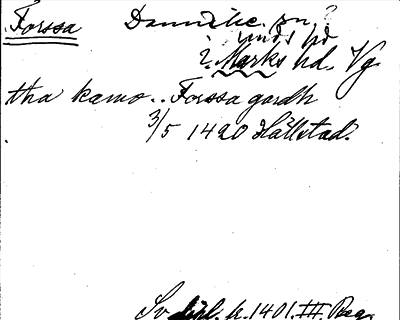 Forssa Dannike sn?
i Marks hd. Vg.
tha kamo.. Forssa gardh
3/5 1420 Hällstad.
Sv dipl. fr. 1401. III. Reg.